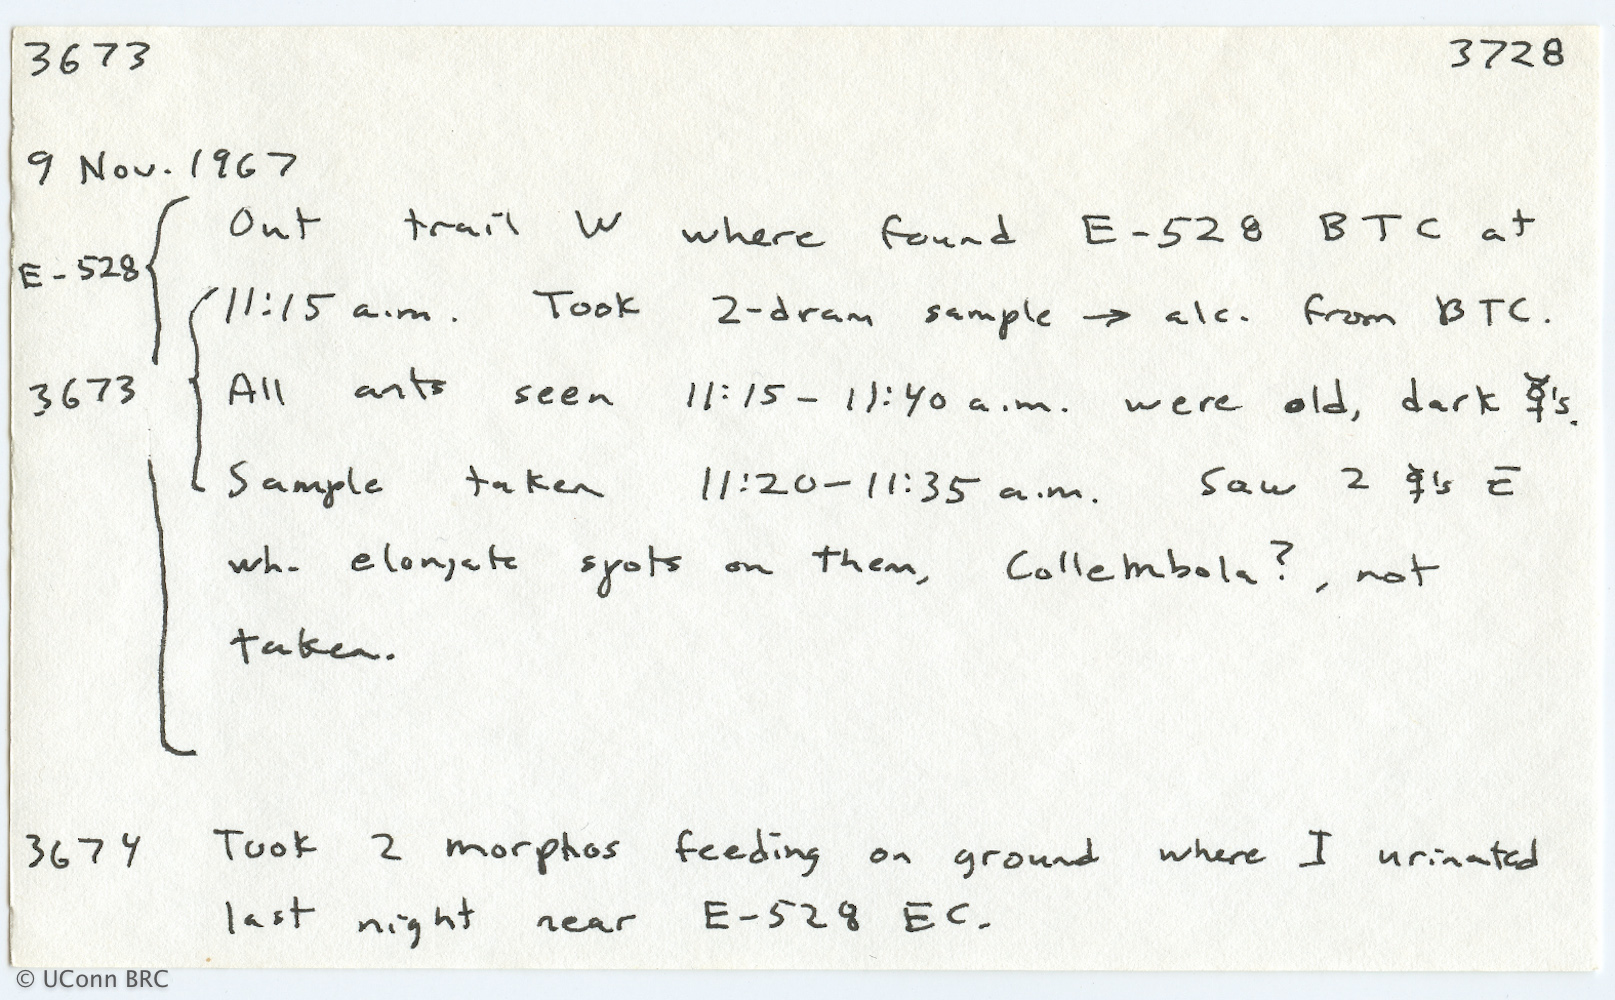 3673 3728
9 Nov. 1967
Out trail W where found E-528 BTC at
E-528
11:15 a.m. Took 2-dram sample → alc. from BTC.
3673 All ants seen 11:15-11:40 a.m. were old, dark ☿'s.
Sample taken 11:20-11:35 a.m. Saw 2 ☿'s c̄
wh. elongate spots on them, Collembola?, not
taken.
3674 Took 2 morphos feeding on ground where I urinated
last night near E-528 EC.
© UConn BRC